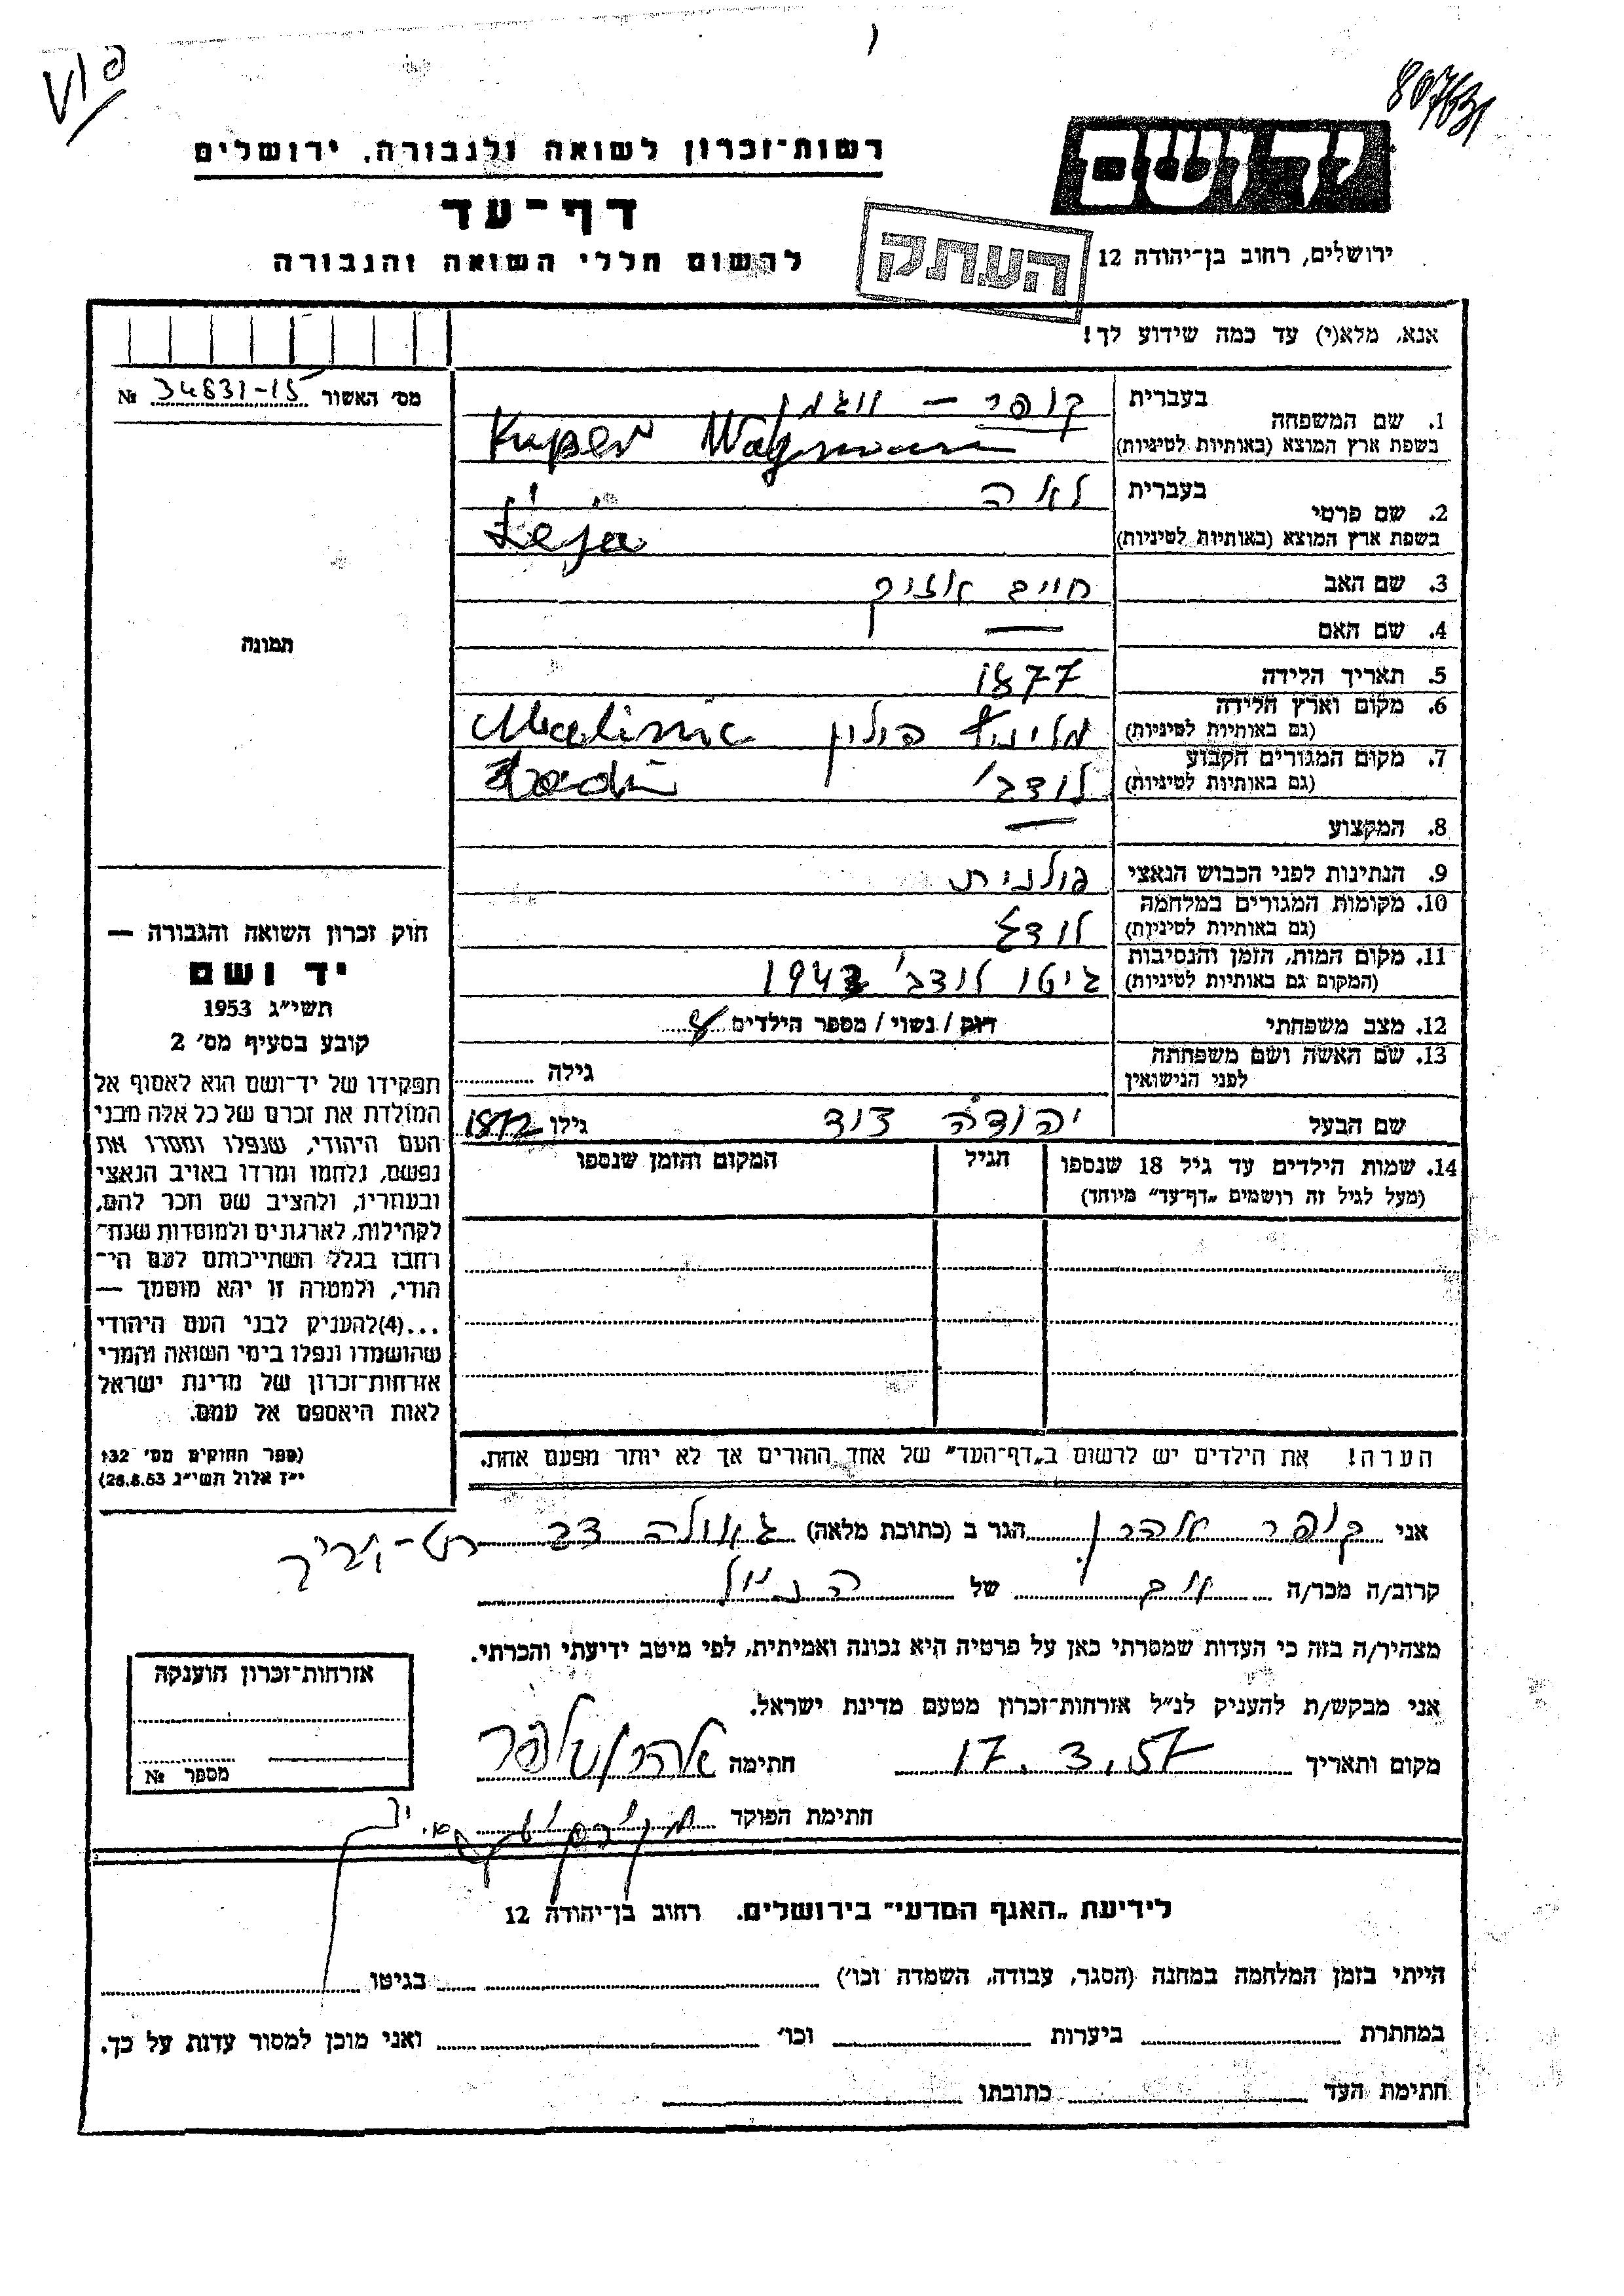 רשות־זכרון לשואה ולגבורה, ירושלים
דף־עד
לרשום חללי השואה והגבורה
יד ושם
ירושלים, רחוב בן־יהודה 12
העתק
אנא, מלא(י) עד כמה שידוע לך!
מס׳ האשור 34831-15 №
תמונה
1. שם המשפחה
בעברית
קופר – ווגמן
בשפת ארץ המוצא (באותיות לטיניות)
Kuper Wagman
2. שם פרטי
בעברית
לאה
בשפת ארץ המוצא (באותיות לטיניות)
Łeja
3. שם האב
חיים אזיק
4. שם האם —
5. תאריך הלידה 1877
6. מקום וארץ הלידה
(גם באותיות לטיניות)
פולין
7. מקום המגורים הקבוע
(גם באותיות לטיניות)
לודג׳
8. המקצוע —
9. הנתינות לפני הכבוש הנאצי
פולנית
10. מקומות המגורים במלחמה
(גם באותיות לטיניות)
לודז
11. מקום המות, הזמן והנסיבות
(המקום גם באותיות לטיניות)
גיטו לודג׳
12. מצב משפחתי
רווק / נשוי / מספר הילדים 8
13. שם האשה ושם משפחתה
לפני הנישואין
גילה
שם הבעל
יהודה דוד
גילו 1872
14. שמות הילדים עד גיל 18 שנספו
(מעל לגיל זה רושמים „דף־עד״ מיוחד)
הגיל
המקום והזמן שנספו
חוק זכרון השואה והגבורה —
יד ושם
תשי״ג 1953
קובע בסעיף מס׳ 2
תפקידו של יד־ושם הוא לאסוף אל
המולדת את זכרם של כל אלה מבני
העם היהודי, שנפלו ומסרו את
נפשם, נלחמו ומרדו באויב הנאצי
ובעוזריו, ולהציב שם וזכר להם,
לקהילות, לארגונים ולמוסדות שנח־
רבו בגלל השתייכותם לעם הי־
הודי, ולמטרה זו יהא מוסמך —
...(4)להעניק לבני העם היהודי
שהושמדו ונפלו בימי השואה והמרי
אזרחות־זכרון של מדינת ישראל
לאות היאספם אל עמם.
(ספר החוקים מס׳ 132
י״ז אלול תשי״ג 28.8.53)
הערה! את הילדים יש לרשום ב„דף־העד״ של אחד ההורים אך לא יותר מפעם אחת.
אני קופר אהרן הגר ב (כתובת מלאה) גאולה
קרוב/ה מכר/ה של הנ״ל
מצהיר/ה בזה כי העדות שמסרתי כאן על פרטיה היא נכונה ואמיתית, לפי מיטב ידיעתי והכרתי.
אני מבקש/ת להעניק לנ״ל אזרחות־זכרון מטעם מדינת ישראל.
מקום ותאריך 17.3.57 חתימה אהרן קופר
חתימת הפוקד
אזרחות־זכרון הוענקה
מספר №
לידיעת „האגף המדעי״ בירושלים. רחוב בן־יהודה 12
הייתי בזמן המלחמה במחנה (הסגר, עבודה, השמדה וכו׳) בגיטו
במחתרת ביערות וכו׳ ואני מוכן למסור עדות על כך.
חתימת העד כתובתו